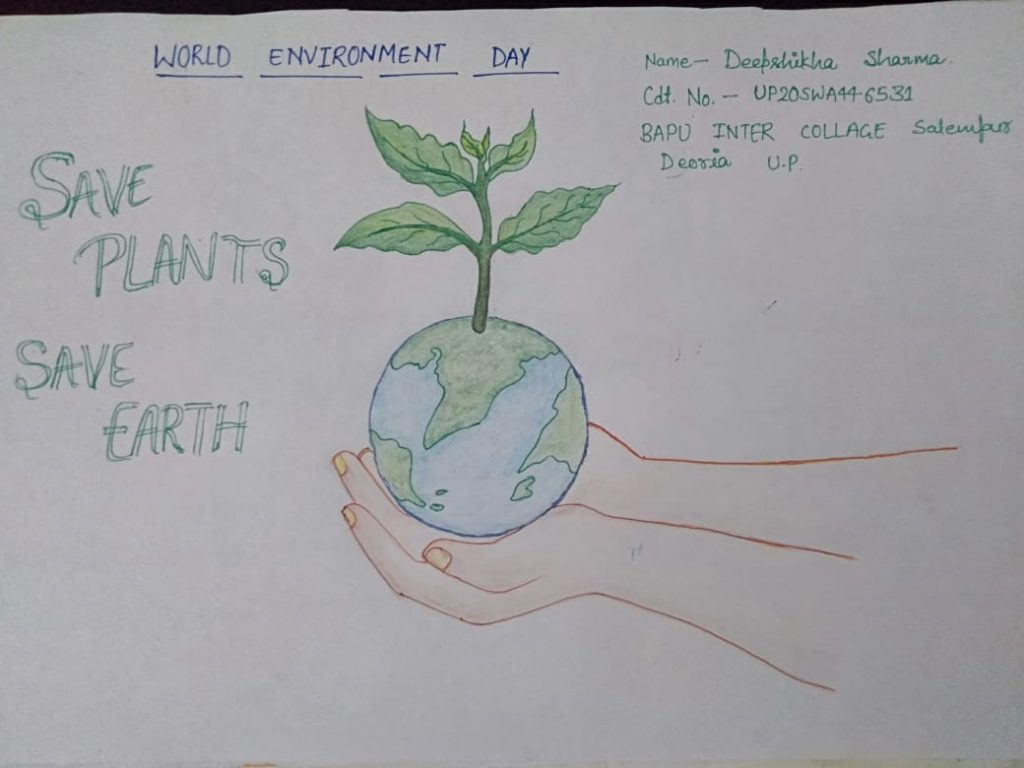 WORLD ENVIRONMENT DAY
Name- Deepshikha Sharma.
Cdt. No. - UP20SWA446531
BAPU INTER COLLAGE Salempur
Deoria U.P.
SAVE
PLANTS
SAVE
EARTH